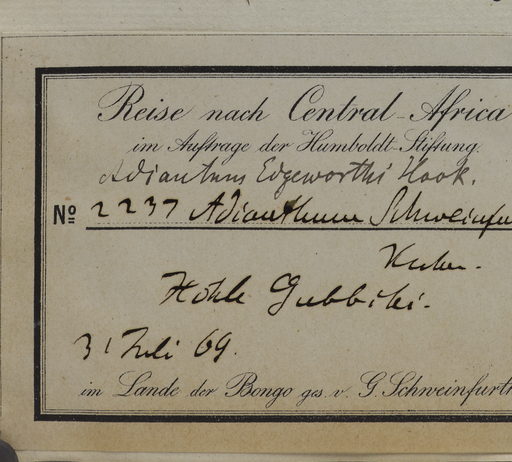 Reise nach Central-Africa
im Auftrage der Humboldt-Stiftung.
Adiantum Edgeworthi Hook.
No 2237 Adianthum Schweinfu
Kuhn.
Höhle Gubbihi.
31 Juli 69.
im Lande der Bongo ges. v. G. Schweinfurth